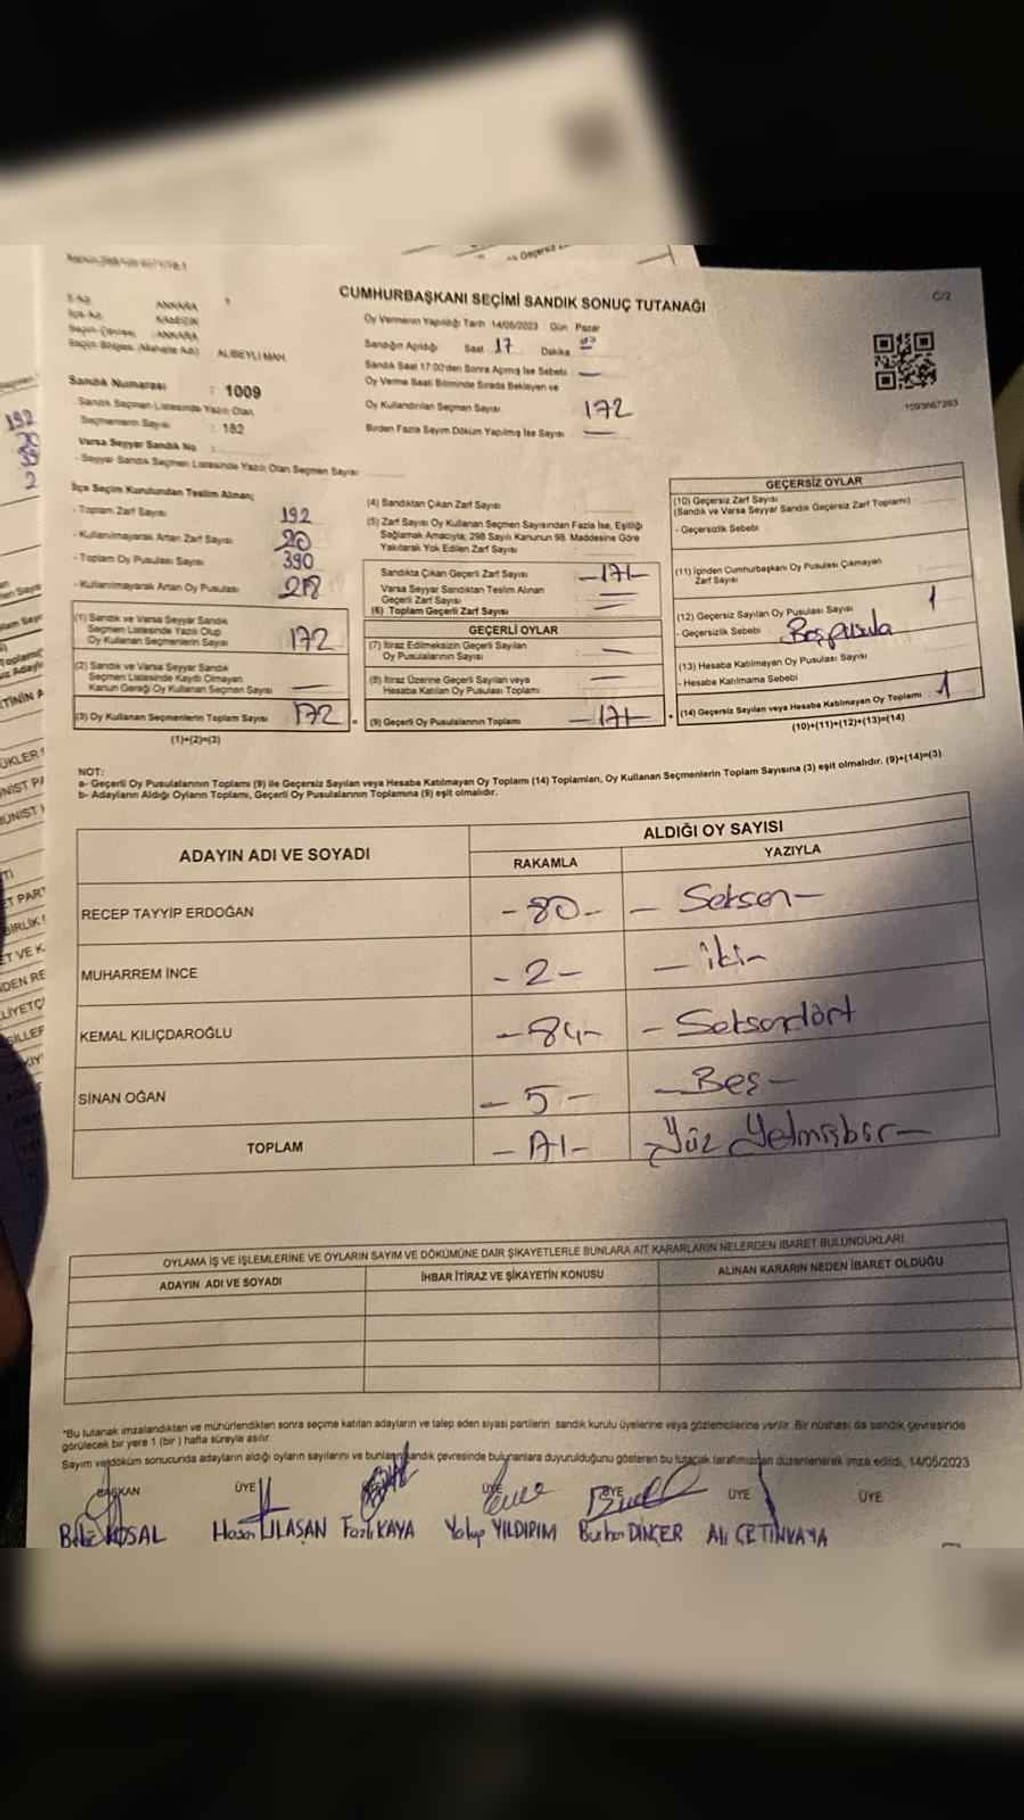 CUMHURBAŞKANI SEÇİMİ SANDIK SONUÇ TUTANAĞI
C/2
Oy Vermenin Yapıldığı Tarih 14/05/2023 Gün Pazar
Sandığın Açıldığı Saat 17 Dakika
Sandık Saat 17:00'den Sonra Açılmış İse Sebebi —
Oy Verme Saati Bitiminde Sırada Bekleyen ve
Oy Kullandırılan Seçmen Sayısı 172
Birden Fazla Sayım Döküm Yapılmış İse Sayısı —
ANKARA
ANKARA
ALIBEYLİ MAH.
Sandık Numarası : 1009
Sandık Seçmen Listesinde Yazılı Olan
Seçmenlerin Sayısı : 182
Varsa Seyyar Sandık No :
- Seyyar Sandık Seçmen Listesinde Yazılı Olan Seçmen Sayısı
İlçe Seçim Kurulundan Teslim Alınan;
- Toplam Zarf Sayısı 192
- Kullanılmayarak Artan Zarf Sayısı 20
- Toplam Oy Pusulası Sayısı 390
- Kullanılmayarak Artan Oy Pusulası 218
(1) Sandık ve Varsa Seyyar Sandık
Seçmen Listesinde Yazılı Olup
Oy Kullanan Seçmenlerin Sayısı 172
(2) Sandık ve Varsa Seyyar Sandık
Seçmen Listesinde Kaydı Olmayan
Kanun Gereği Oy Kullanan Seçmen Sayısı —
(3) Oy Kullanan Seçmenlerin Toplam Sayısı 172
(1)+(2)=(3)
(4) Sandıktan Çıkan Zarf Sayısı
(5) Zarf Sayısı Oy Kullanan Seçmen Sayısından Fazla İse, Eşitliği
Sağlamak Amacıyla; 298 Sayılı Kanunun 98. Maddesine Göre
Yakılarak Yok Edilen Zarf Sayısı
Sandıkta Çıkan Geçerli Zarf Sayısı —171—
Varsa Seyyar Sandıktan Teslim Alınan
Geçerli Zarf Sayısı —
(6) Toplam Geçerli Zarf Sayısı —
GEÇERLİ OYLAR
(7) İtiraz Edilmeksizin Geçerli Sayılan
Oy Pusulalarının Sayısı —
(8) İtiraz Üzerine Geçerli Sayılan veya
Hesaba Katılan Oy Pusulası Toplamı —
(9) Geçerli Oy Pusulalarının Toplamı —171—
GEÇERSİZ OYLAR
(10) Geçersiz Zarf Sayısı
(Sandık ve Varsa Seyyar Sandık Geçersiz Zarf Toplamı)
- Geçersizlik Sebebi
(11) İçinden Cumhurbaşkanı Oy Pusulası Çıkmayan
Zarf Sayısı
(12) Geçersiz Sayılan Oy Pusulası Sayısı 1
- Geçersizlik Sebebi Boşpusula
(13) Hesaba Katılmayan Oy Pusulası Sayısı
- Hesaba Katılmama Sebebi
(14) Geçersiz Sayılan veya Hesaba Katılmayan Oy Toplamı : 1
(10)+(11)+(12)+(13)=(14)
NOT:
a- Geçerli Oy Pusulalarının Toplamı (9) ile Geçersiz Sayılan veya Hesaba Katılmayan Oy Toplamı (14) Toplamları, Oy Kullanan Seçmenlerin Toplam Sayısına (3) eşit olmalıdır. (9)+(14)=(3)
b- Adayların Aldığı Oyların Toplamı, Geçerli Oy Pusulalarının Toplamına (9) eşit olmalıdır.
ADAYIN ADI VE SOYADI
ALDIĞI OY SAYISI
RAKAMLA YAZIYLA
RECEP TAYYİP ERDOĞAN -80- - Seksen -
MUHARREM İNCE -2- - iki -
KEMAL KILIÇDAROĞLU -84- - Seksendört
SİNAN OĞAN -5- - Beş -
TOPLAM -171- - Yüz Yetmişbir -
OYLAMA İŞ VE İŞLEMLERİNE VE OYLARIN SAYIM VE DÖKÜMÜNE DAİR ŞİKAYETLERLE BUNLARA AİT KARARLARIN NELERDEN İBARET BULUNDUKLARI
ADAYIN ADI VE SOYADI İHBAR İTİRAZ VE ŞİKAYETİN KONUSU ALINAN KARARIN NEDEN İBARET OLDUĞU
*Bu tutanak imzalandıktan ve mühürlendikten sonra seçime katılan adayların ve talep eden siyasi partilerin sandık kurulu üyelerine veya gözlemcilerine verilir. Bir nüshası da sandık çevresinde
görülecek bir yere 1 (bir) hafta süreyle asılır.
Sayım ve döküm sonucunda adayların aldığı oyların sayılarını ve bunların sandık çevresinde bulunanlara duyurulduğunu gösteren bu tutanak tarafımızdan düzenlenerek imza edildi, 14/05/2023
BAŞKAN ÜYE ÜYE ÜYE ÜYE ÜYE
KÖSAL Hasan ULAŞAN Fazlı KAYA Yakup YILDIRIM Burhan DİNÇER Ali ÇETİNKAYA